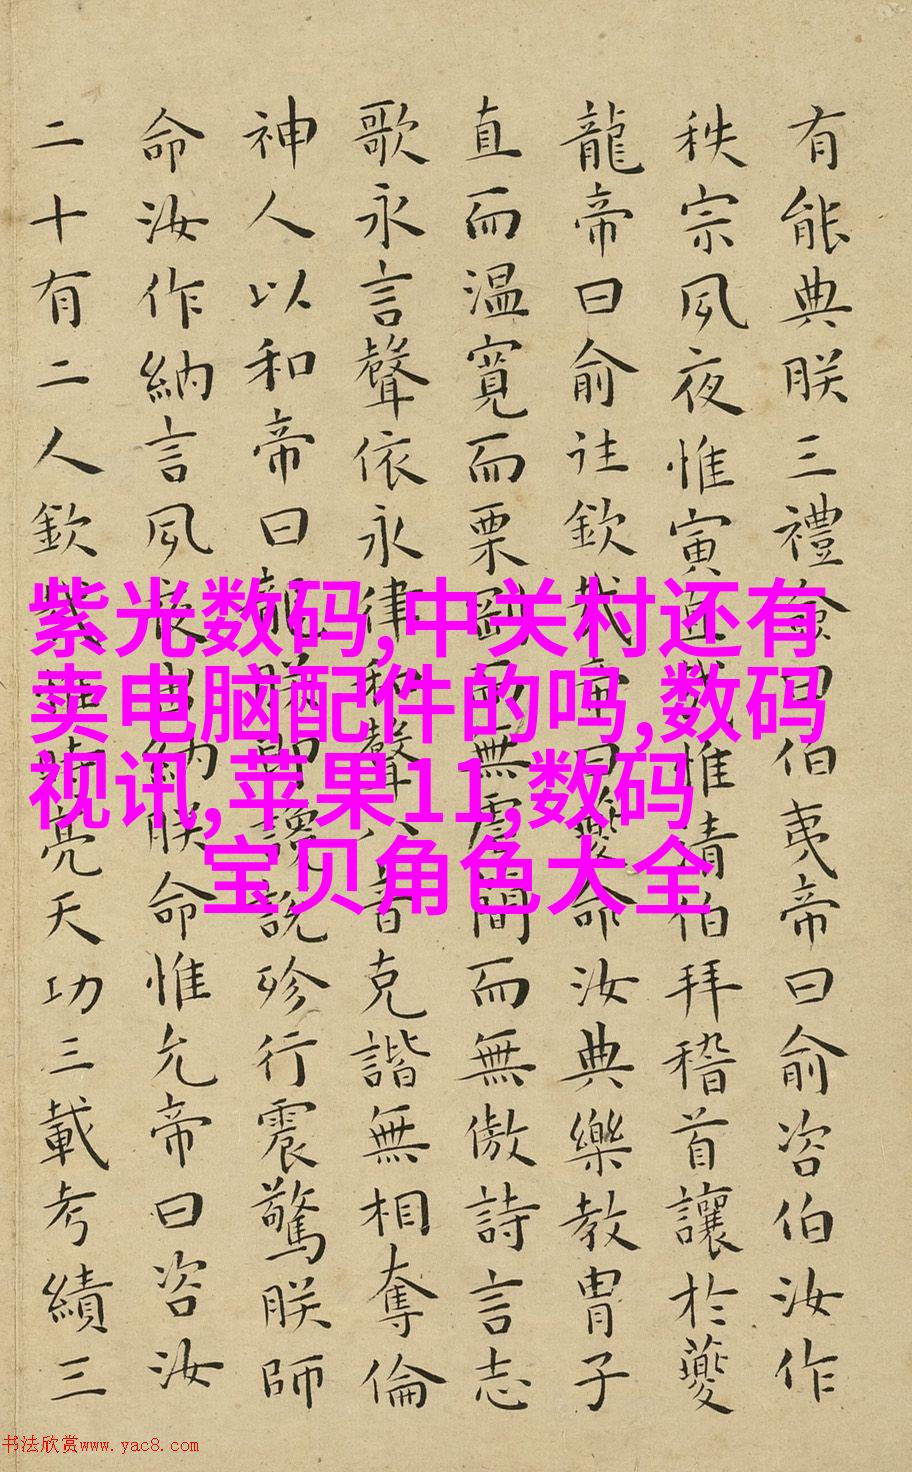 有能典朕三禮僉曰伯夷帝曰俞咨伯汝作
秩宗夙夜惟寅直哉惟清伯拜稽首讓於夔
龍帝曰俞往欽哉帝曰夔命汝典樂教胄子
直而温寬而栗剛而無虐簡而無傲詩言志
歌永言聲依永律和聲八音克諧無相奪倫
神人以和帝曰龍朕堲讒說殄行震驚朕師
命汝作納言夙夜出納朕命惟允帝曰咨汝
二十有二人欽哉惟時亮天功三載考績三
紫光数码,中关村还有
卖电脑配件的吗,数码
视讯,苹果11,数码
宝贝角色大全
书法欣赏www.yac8.com